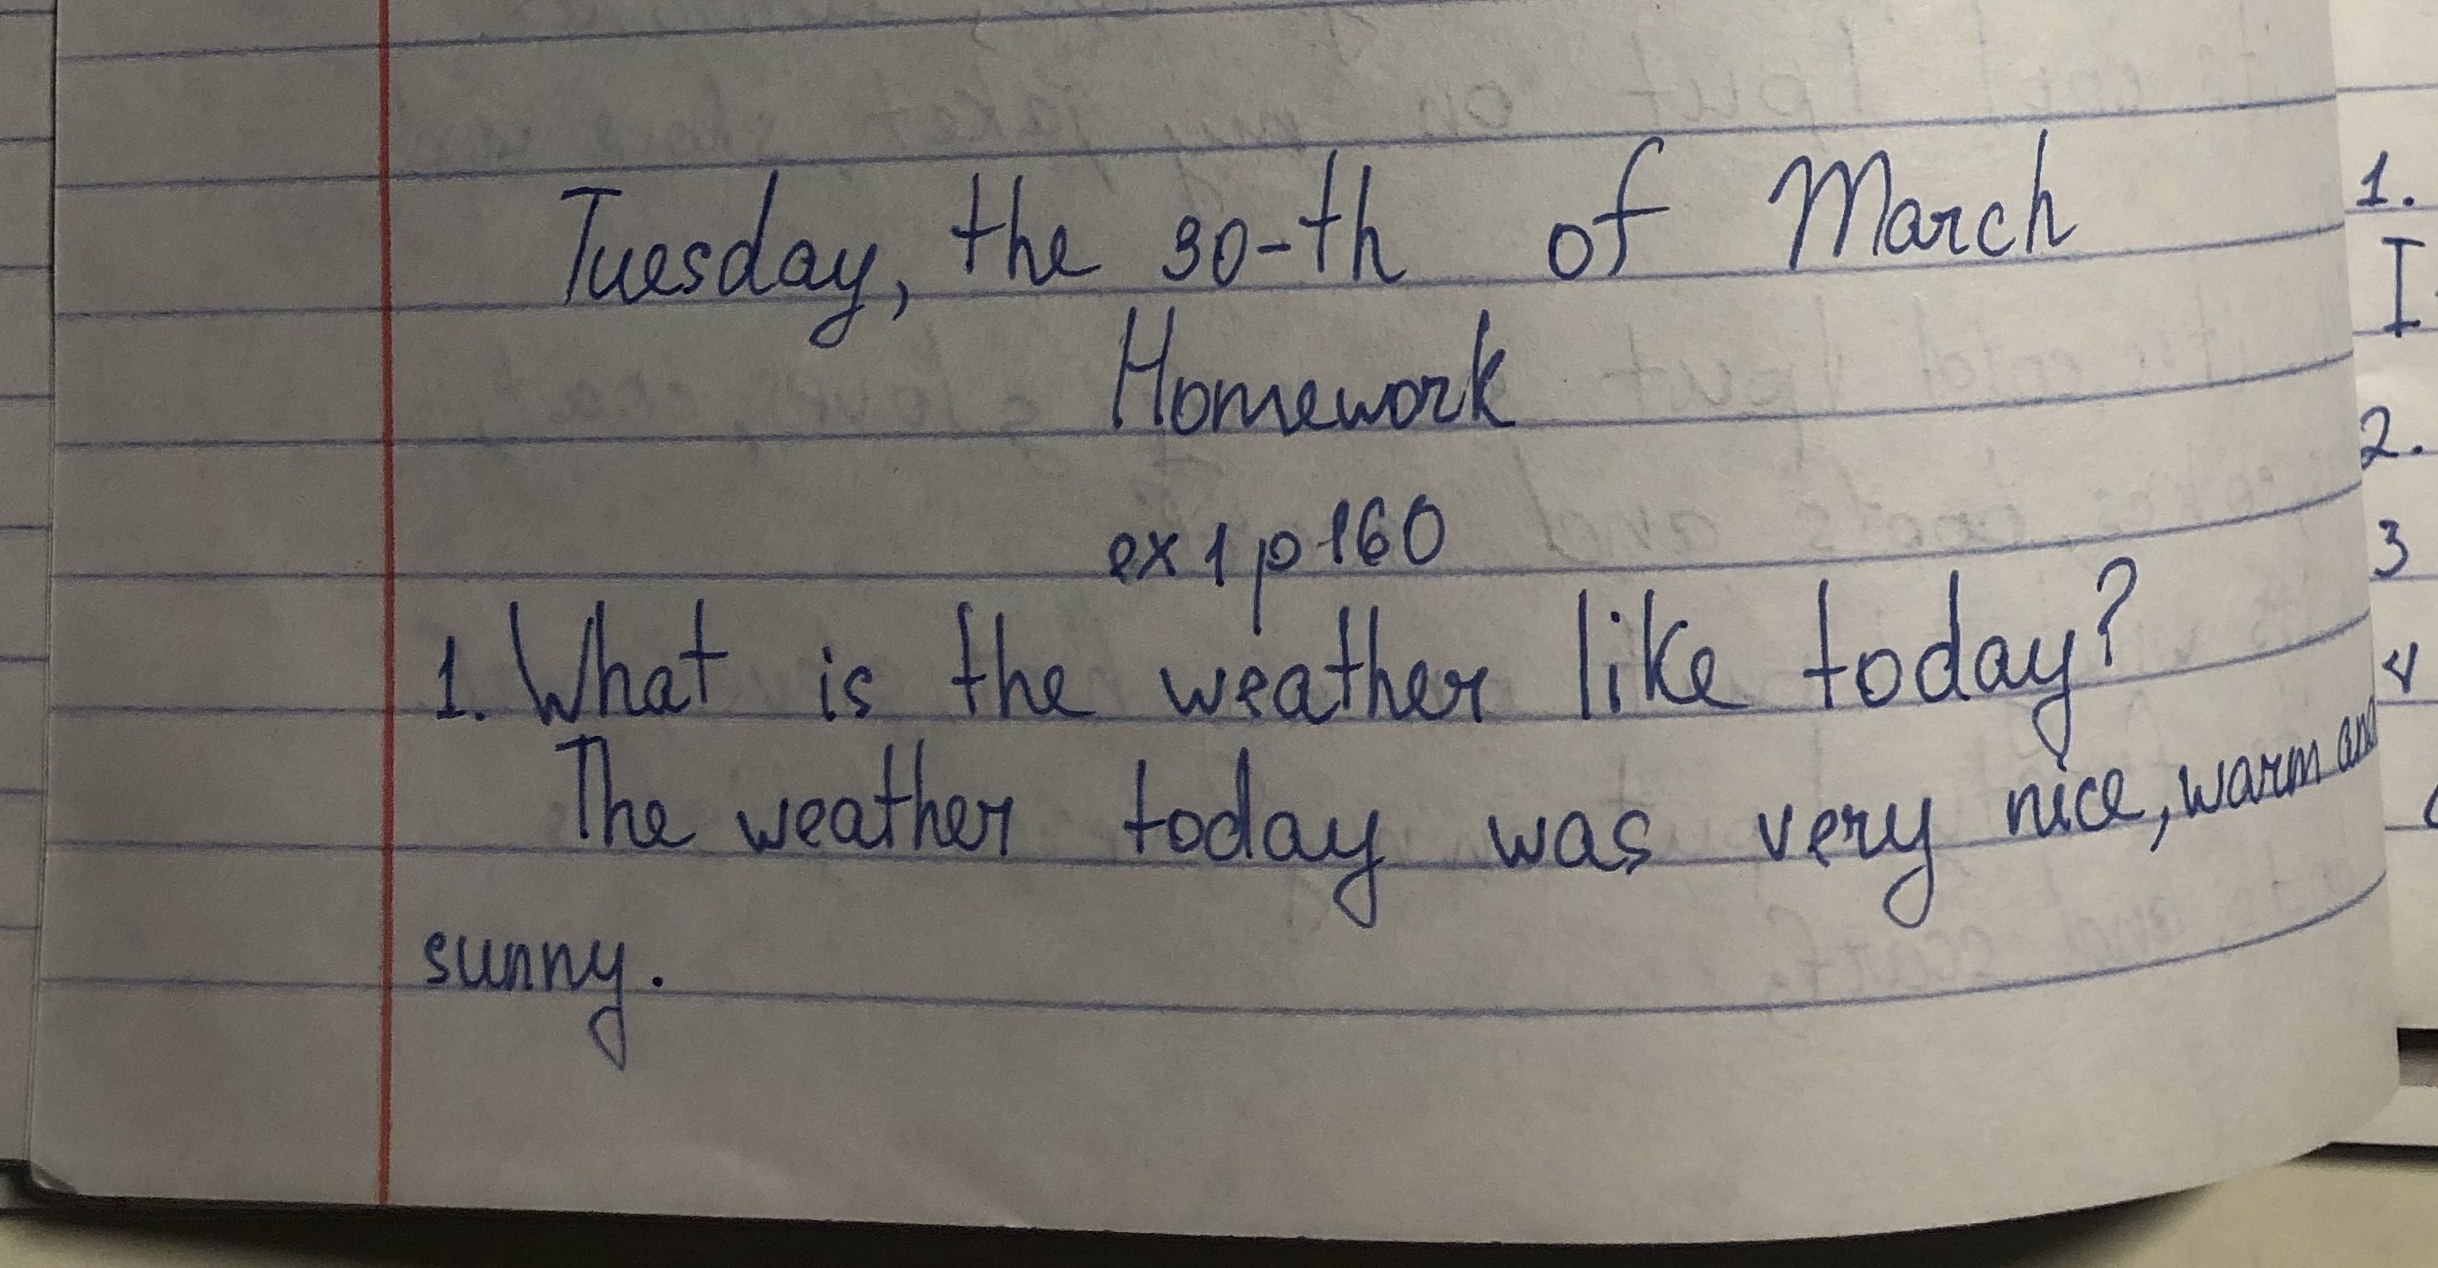 Tuesday, the 30-th of March
Homework
ex 1 p 160
1. What is the weather like today?
The weather today was very nice, warm and
sunny.
1.
I
2.
3
4